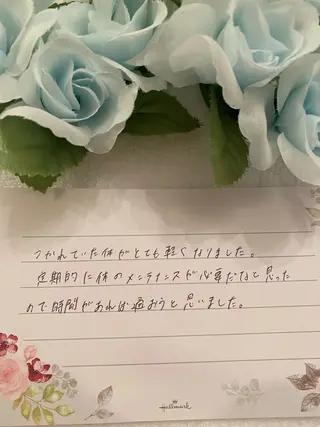 つかれていた体がとても軽くなりました。
定期的に体のメンテナンスが必要だなと思った
ので時間があれば通おうと思いました。
Hallmark